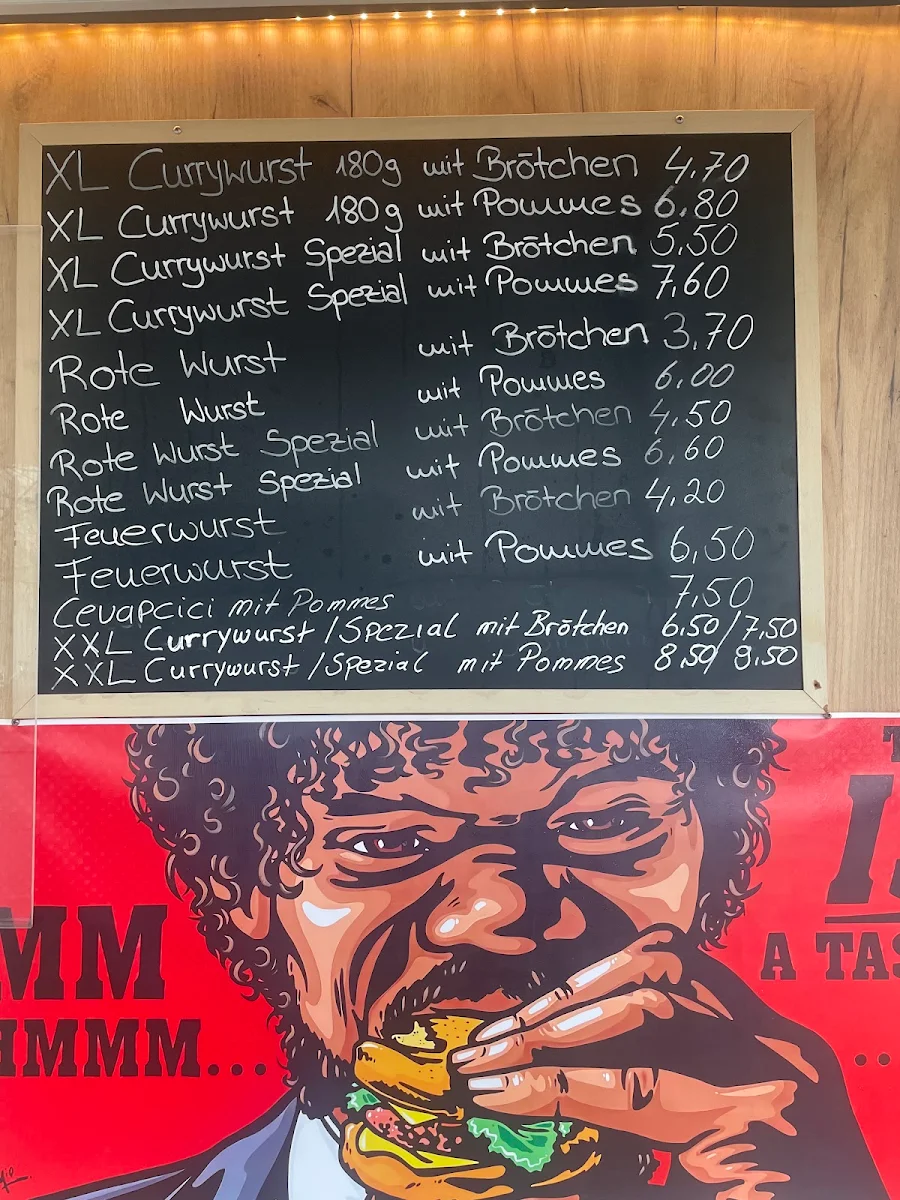 XL Currywurst 180g mit Brötchen 4.70
XL Currywurst 180g mit Pommes 6.80
XL Currywurst Spezial mit Brötchen 5.50
XL Currywurst Spezial mit Pommes 7.60
Rote Wurst mit Brötchen 3.70
Rote Wurst mit Pommes 6.00
Rote Wurst Spezial mit Brötchen 4.50
Rote Wurst Spezial mit Pommes 6.60
Feuerwurst mit Brötchen 4,20
Feuerwurst mit Pommes 6,50
Cevapcici mit Pommes 7,50
XXL Currywurst / Spezial mit Brötchen 6.50 / 7.50
XXL Currywurst / Spezial mit Pommes 8.50 / 9.50
MM
HMMM...
A TAS
..